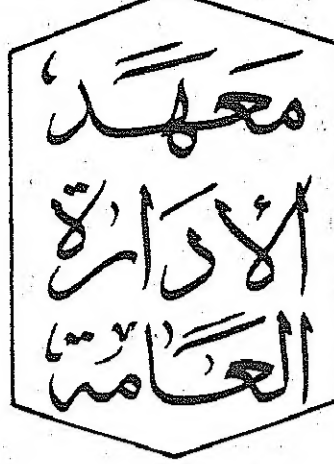 معهد
الأدارة
العامة